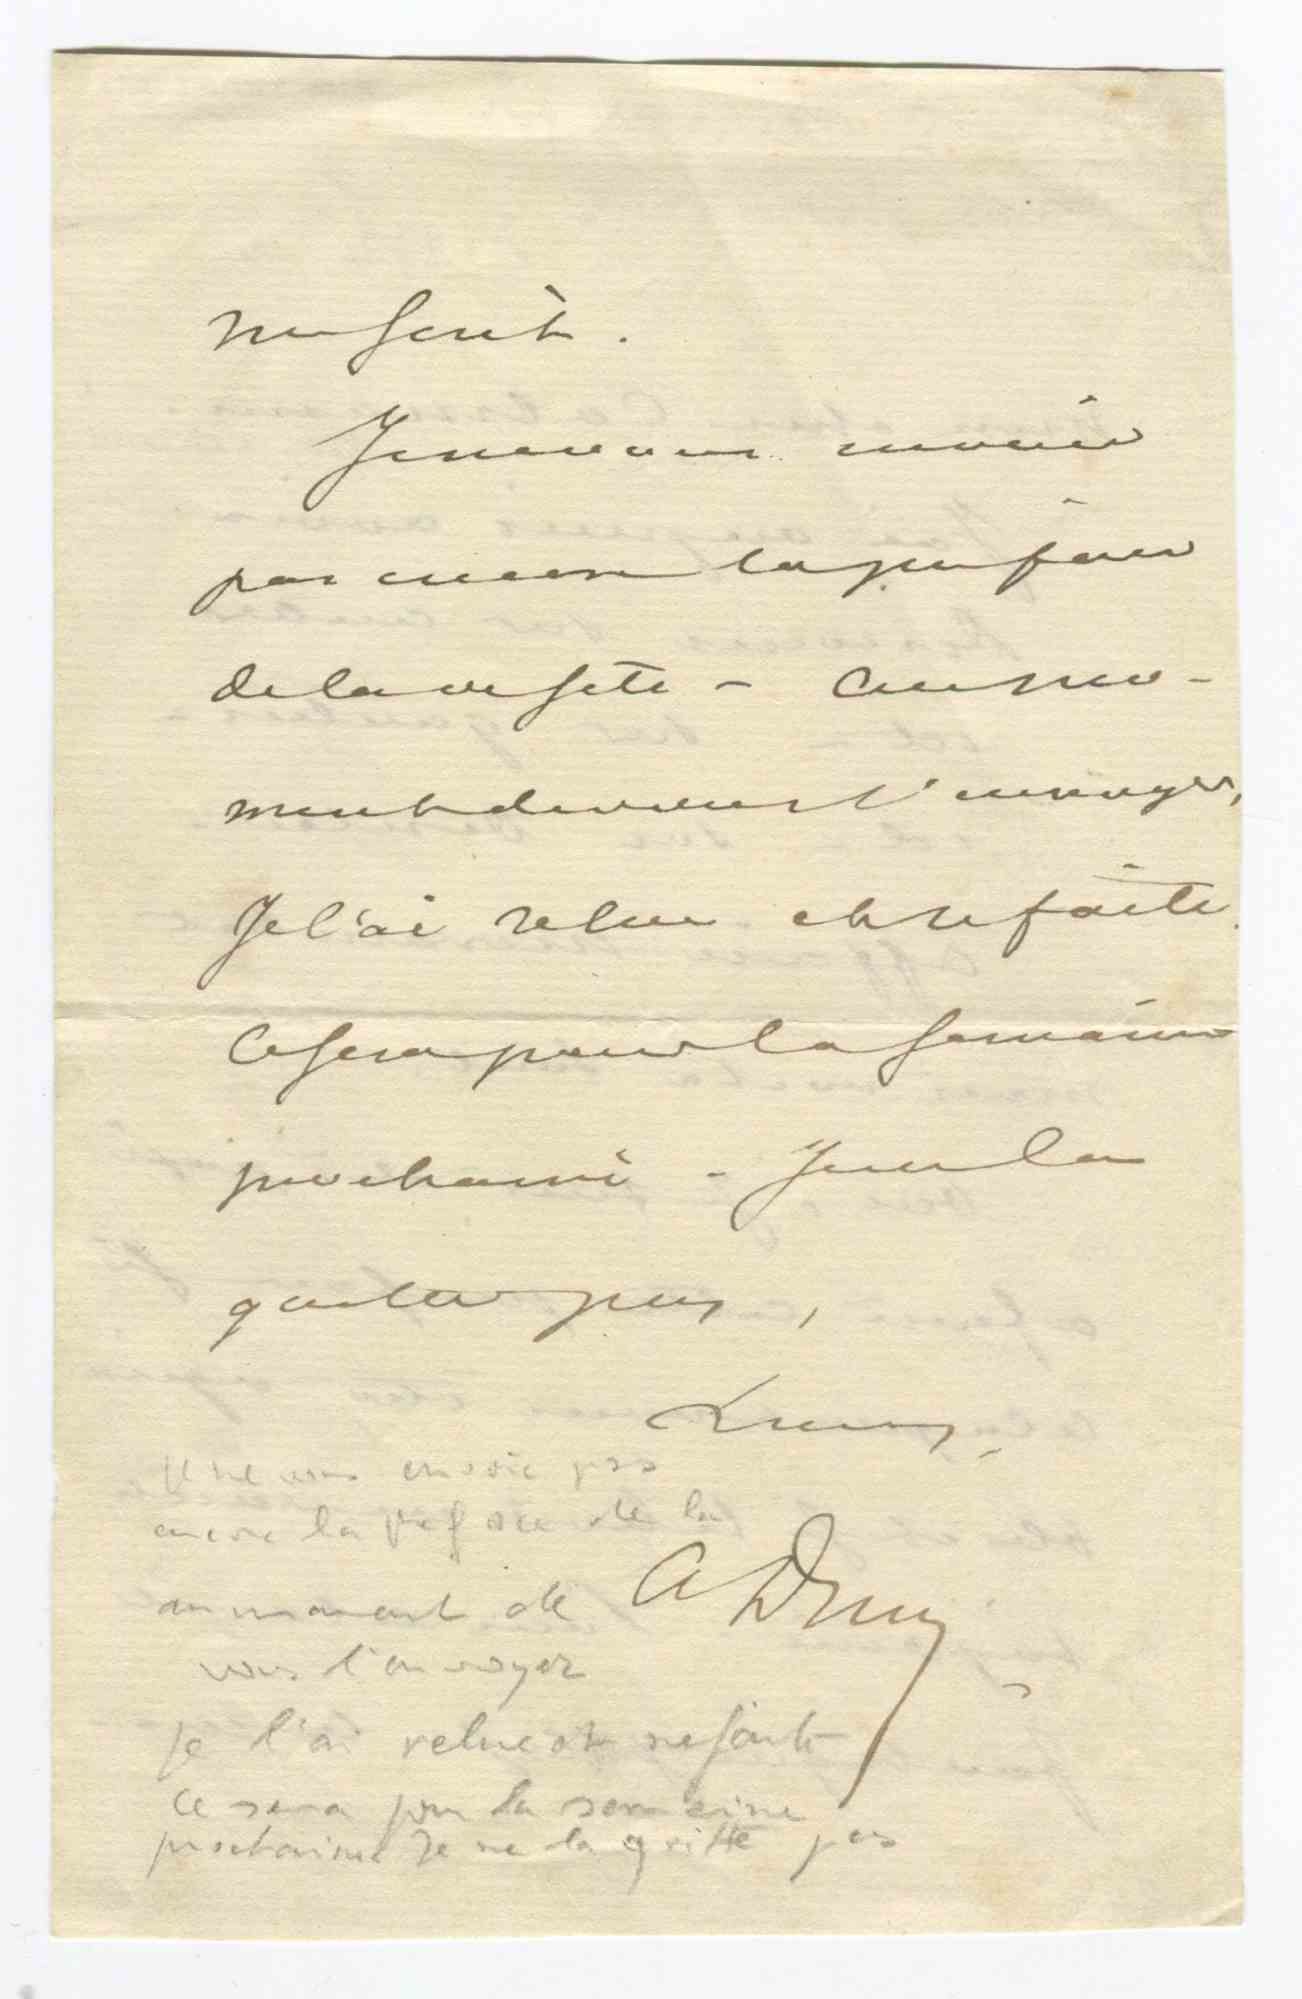 nuscrit.
Je ne vous envoie
pas encore la préface
de la visite - Au mo-
ment de vous l'envoyer,
Je l'ai relue et refaite.
Ce sera pour la semaine
prochaine - Je ne la
quitte pas,
A Dumas
je ne vous envoie pas
encore la préface de la
au moment de
vous l'envoyer
je l'ai relue et refaite
ce sera pour la semaine
prochaine Je ne la quitte pas